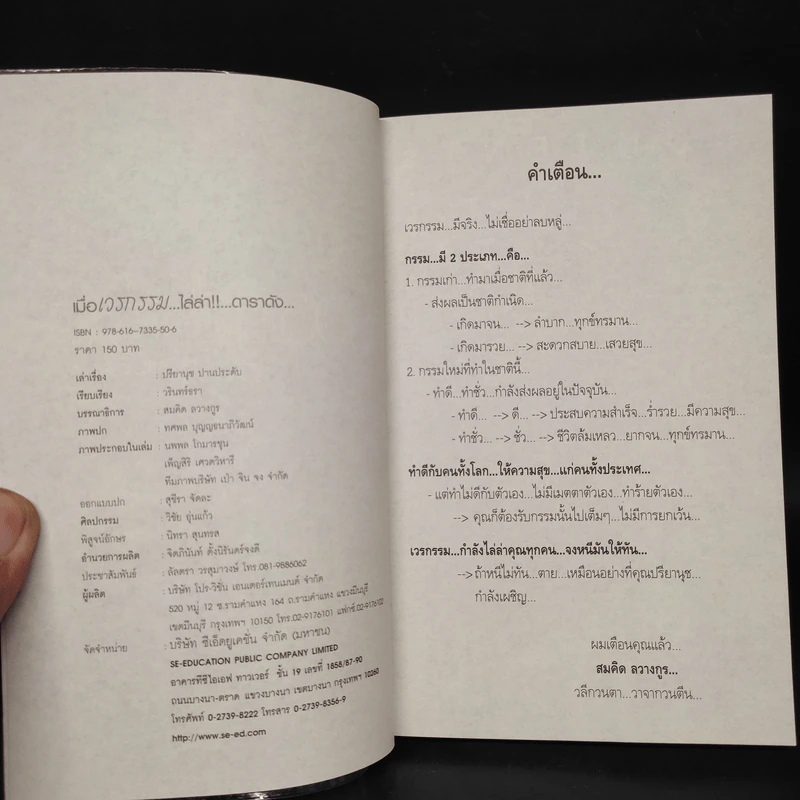 เมื่อเวรกรรม...ไล่ล่า!!...ดาราดัง...
ISBN : 978-616-7335-50-6
ราคา 150 บาท
เล่าเรื่อง : ปรียานุช ปานประดับ
เรียบเรียง : วรินทร์ธรา
บรรณาธิการ : สมคิด ลวางกูร
ภาพปก : ทศพล บุญญธนาภิวัฒน์
ภาพประกอบในเล่ม : นพพล โกมารชุน
เพ็ญสิริ เศวตวิหารี
ทีมภาพบริษัท เป่า จิน จง จำกัด
ออกแบบปก : สุธีรา จัดละ
ศิลปกรรม : วิชัย อุ่นแก้ว
พิสูจน์อักษร : นิทรา สุนทรส
อำนวยการผลิต : จิตภินันท์ ตั้งนิรันดร์จงดี
ประชาสัมพันธ์ : ลัลตรา วรสุมาวงษ์ โทร.081-9886062
ผู้ผลิต : บริษัท โปร-วิชั่น เอนเตอร์เทนเมนต์ จำกัด
520 หมู่ 12 ซ.รามคำแหง 164 ถ.รามคำแหง แขวงมีนบุรี
เขตมีนบุรี กรุงเทพฯ 10150 โทร.02-9176101 แฟกซ์.02-9176102
จัดจำหน่าย : บริษัท ซีเอ็ดยูเคชั่น จำกัด (มหาชน)
SE-EDUCATION PUBLIC COMPANY LIMITED
อาคารทีซีไอเอฟ ทาวเวอร์ ชั้น 19 เลขที่ 1858/87-90
ถนนบางนา-ตราด แขวงบางนา เขตบางนา กรุงเทพฯ 10260
โทรศัพท์ 0-2739-8222 โทรสาร 0-2739-8356-9
http://www.se-ed.com
คำเตือน...
เวรกรรม...มีจริง...ไม่เชื่ออย่าลบหลู่...
กรรม...มี 2 ประเภท...คือ...
1. กรรมเก่า...ทำมาเมื่อชาติที่แล้ว...
- ส่งผลเป็นชาติกำเนิด...
- เกิดมาจน... --> ลำบาก...ทุกข์ทรมาน...
- เกิดมารวย... --> สะดวกสบาย...เสวยสุข...
2. กรรมใหม่ที่ทำในชาตินี้...
- ทำดี...ทำชั่ว...กำลังส่งผลอยู่ในปัจจุบัน...
- ทำดี... --> ดี... --> ประสบความสำเร็จ...ร่ำรวย...มีความสุข...
- ทำชั่ว... --> ชั่ว... --> ชีวิตล้มเหลว...ยากจน...ทุกข์ทรมาน...
ทำดีกับคนทั้งโลก...ให้ความสุข...แก่คนทั้งประเทศ...
- แต่ทำไม่ดีกับตัวเอง...ไม่มีเมตตาตัวเอง...ทำร้ายตัวเอง...
--> คุณก็ต้องรับกรรมนั้นไปเต็มๆ...ไม่มีการยกเว้น...
เวรกรรม...กำลังไล่ล่าคุณทุกคน...จงหนีมันให้ทัน...
--> ถ้าหนีไม่ทัน...ตาย...เหมือนอย่างที่คุณปรียานุช...
กำลังเผชิญ...
ผมเตือนคุณแล้ว...
สมคิด ลวางกูร...
วลีกวนตา...วาจากวนตีน...